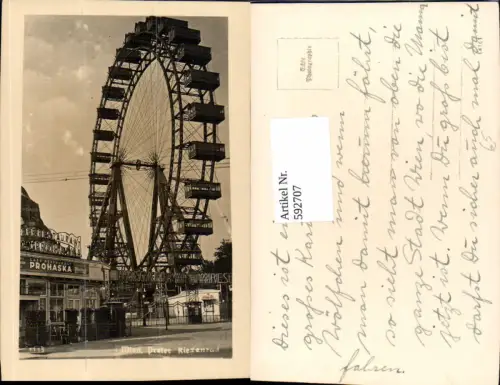 PROHASKA
Wien, Prater Riesenrad
Echte
Photographie
Artikel Nr.
592707
dieses ist ei
großes Kar
Wölfchen und wenn
man damit herum fährt,
so sieht man von oben die
ganze Stadt Wien, wo die Mama
jetzt ist. Wenn Du groß bist
darfst Du sicher auch mal damit
fahren.